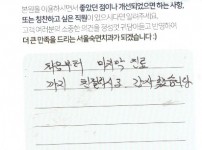 본원을 이용하시면서 좋았던 점이나 개선되었으면 하는 사항,
또는 칭찬하고 싶은 직원이 있으시다면 알려주세요.
고객 여러분의 소중한 의견을 정성껏 귀담아듣고 반영하여,
더 큰 만족을 드리는 서울숙면치과가 되겠습니다 :)
처음부터 마지막 진료
까지 친절하시고 감사했습니다